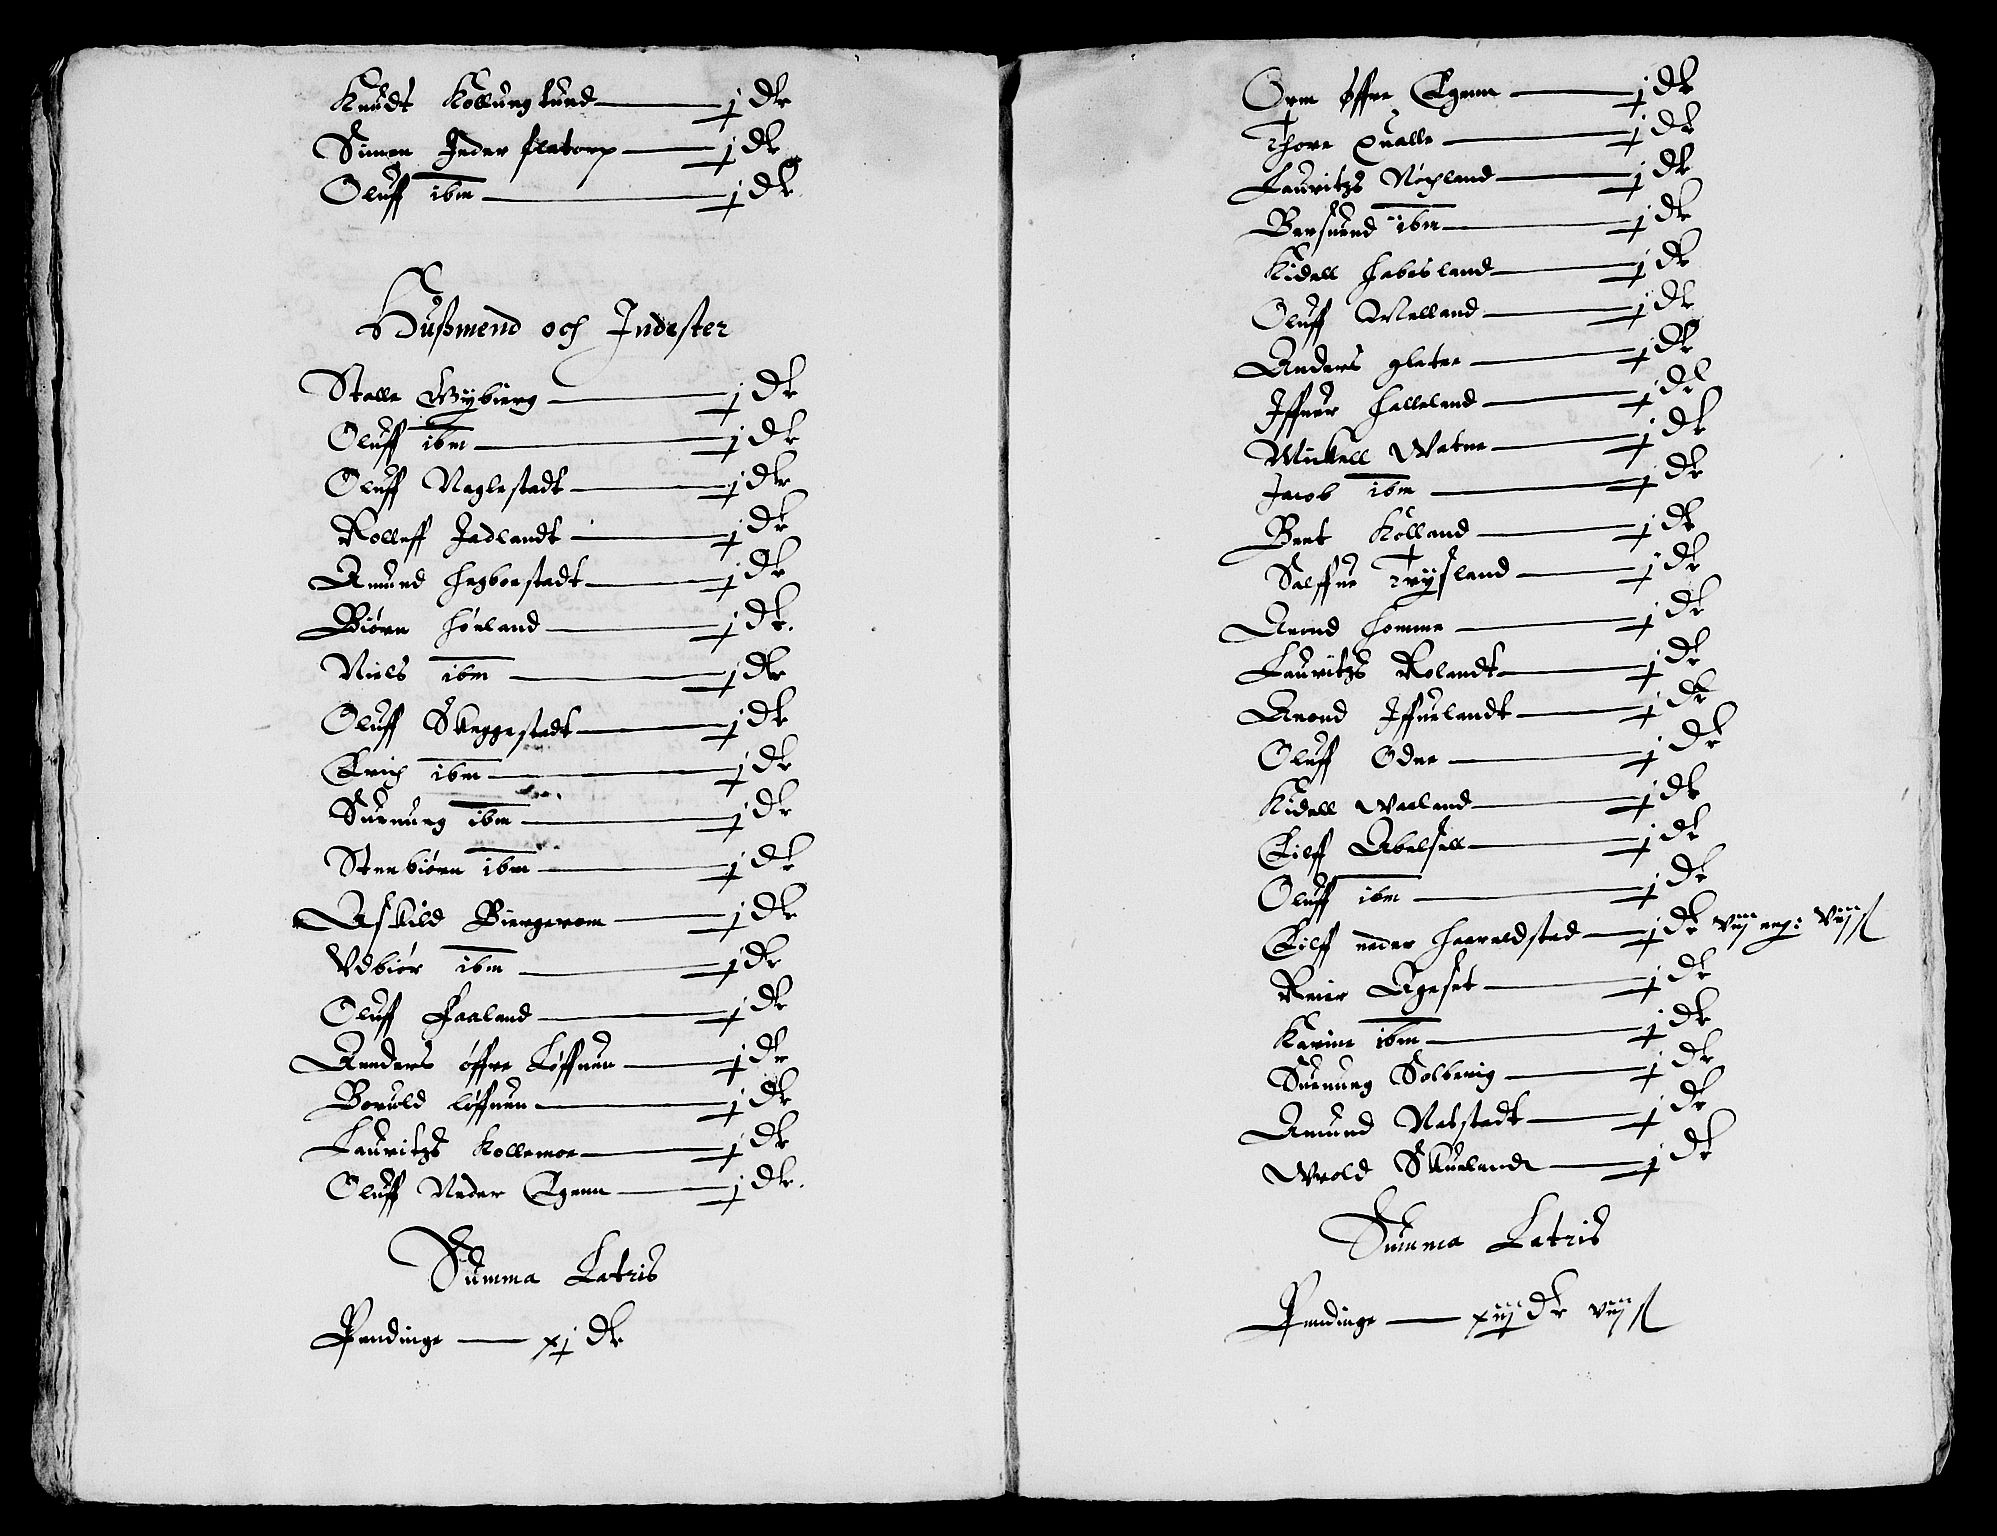 Knudt Kollung lund — j dr
Simen Inder flatorp — j dr
Oluff ibm — j dr
Hußmend och Indester
Stalle Wybierg — j dr
Oluff ibm — j dr
Oluff Naglestadt — j dr
Rolleff Jadlandt — j dr
Amund Hegboestadt — j dr
Biørn Hørland — j dr.
Niels ibm — j dr
Oluff Skeggestadt — j dr
Erich ibm — j dr
Suenung ibm — j dr
Stenbiørn ibm — j dr
Askild Biergerom — j dr
Vdbiør ibm — j dr
Oluff Faaland — j dr
Anders øffre Løffnen — j dr
Boruld løffnen — j dr
Lauritzs Kollemoe — j dr
Oluff Neder Egenn — j dr.
Summa Latris
Pendinge — xj dr
Orm øffre Egenn — j dr
Thore Qualle — j dr
Lauritzs Nøgland — j dr
Bersuend ibm — j dr
Kidell Habesland — j dr
Oluff Melland — j dr
Anders glater — j dr
Iffuer Halleland — j dr
Mickell Watne — j dr
Jacob ibm — j dr
Bent Kolland — j dr
Salffue Trysland — j dr
Anond Homme — j dr
Lauritzs Rolandt — j dr
Anond Iffuelandt — j dr
Oluff Odne — j dr
Kidell Waaland — j dr
Eilff Abelsell — j dr
Oluff ibm — j dr
Eilff neder Haaraldstad — j dr viij
Reier Ageset — j dr
Karine ibm — j dr
Suenung Solberig — j dr
Amund Nabstadt — j dr
Wrold Skueland — j dr
Summa Latris
Pendinge — xiij dr viij ß